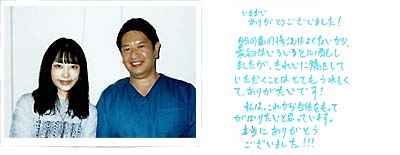 いままで
ありがとうございました!
自分の歯の状況はよくないから、
最初はいろいろと心配し
ましたが、きれいに矯正して
いただくことはとてもうれしく
て、ありがたいです!
私は、これから自信をもって
がんばりたいと思っています。
本当にありがとう
ございました!!!